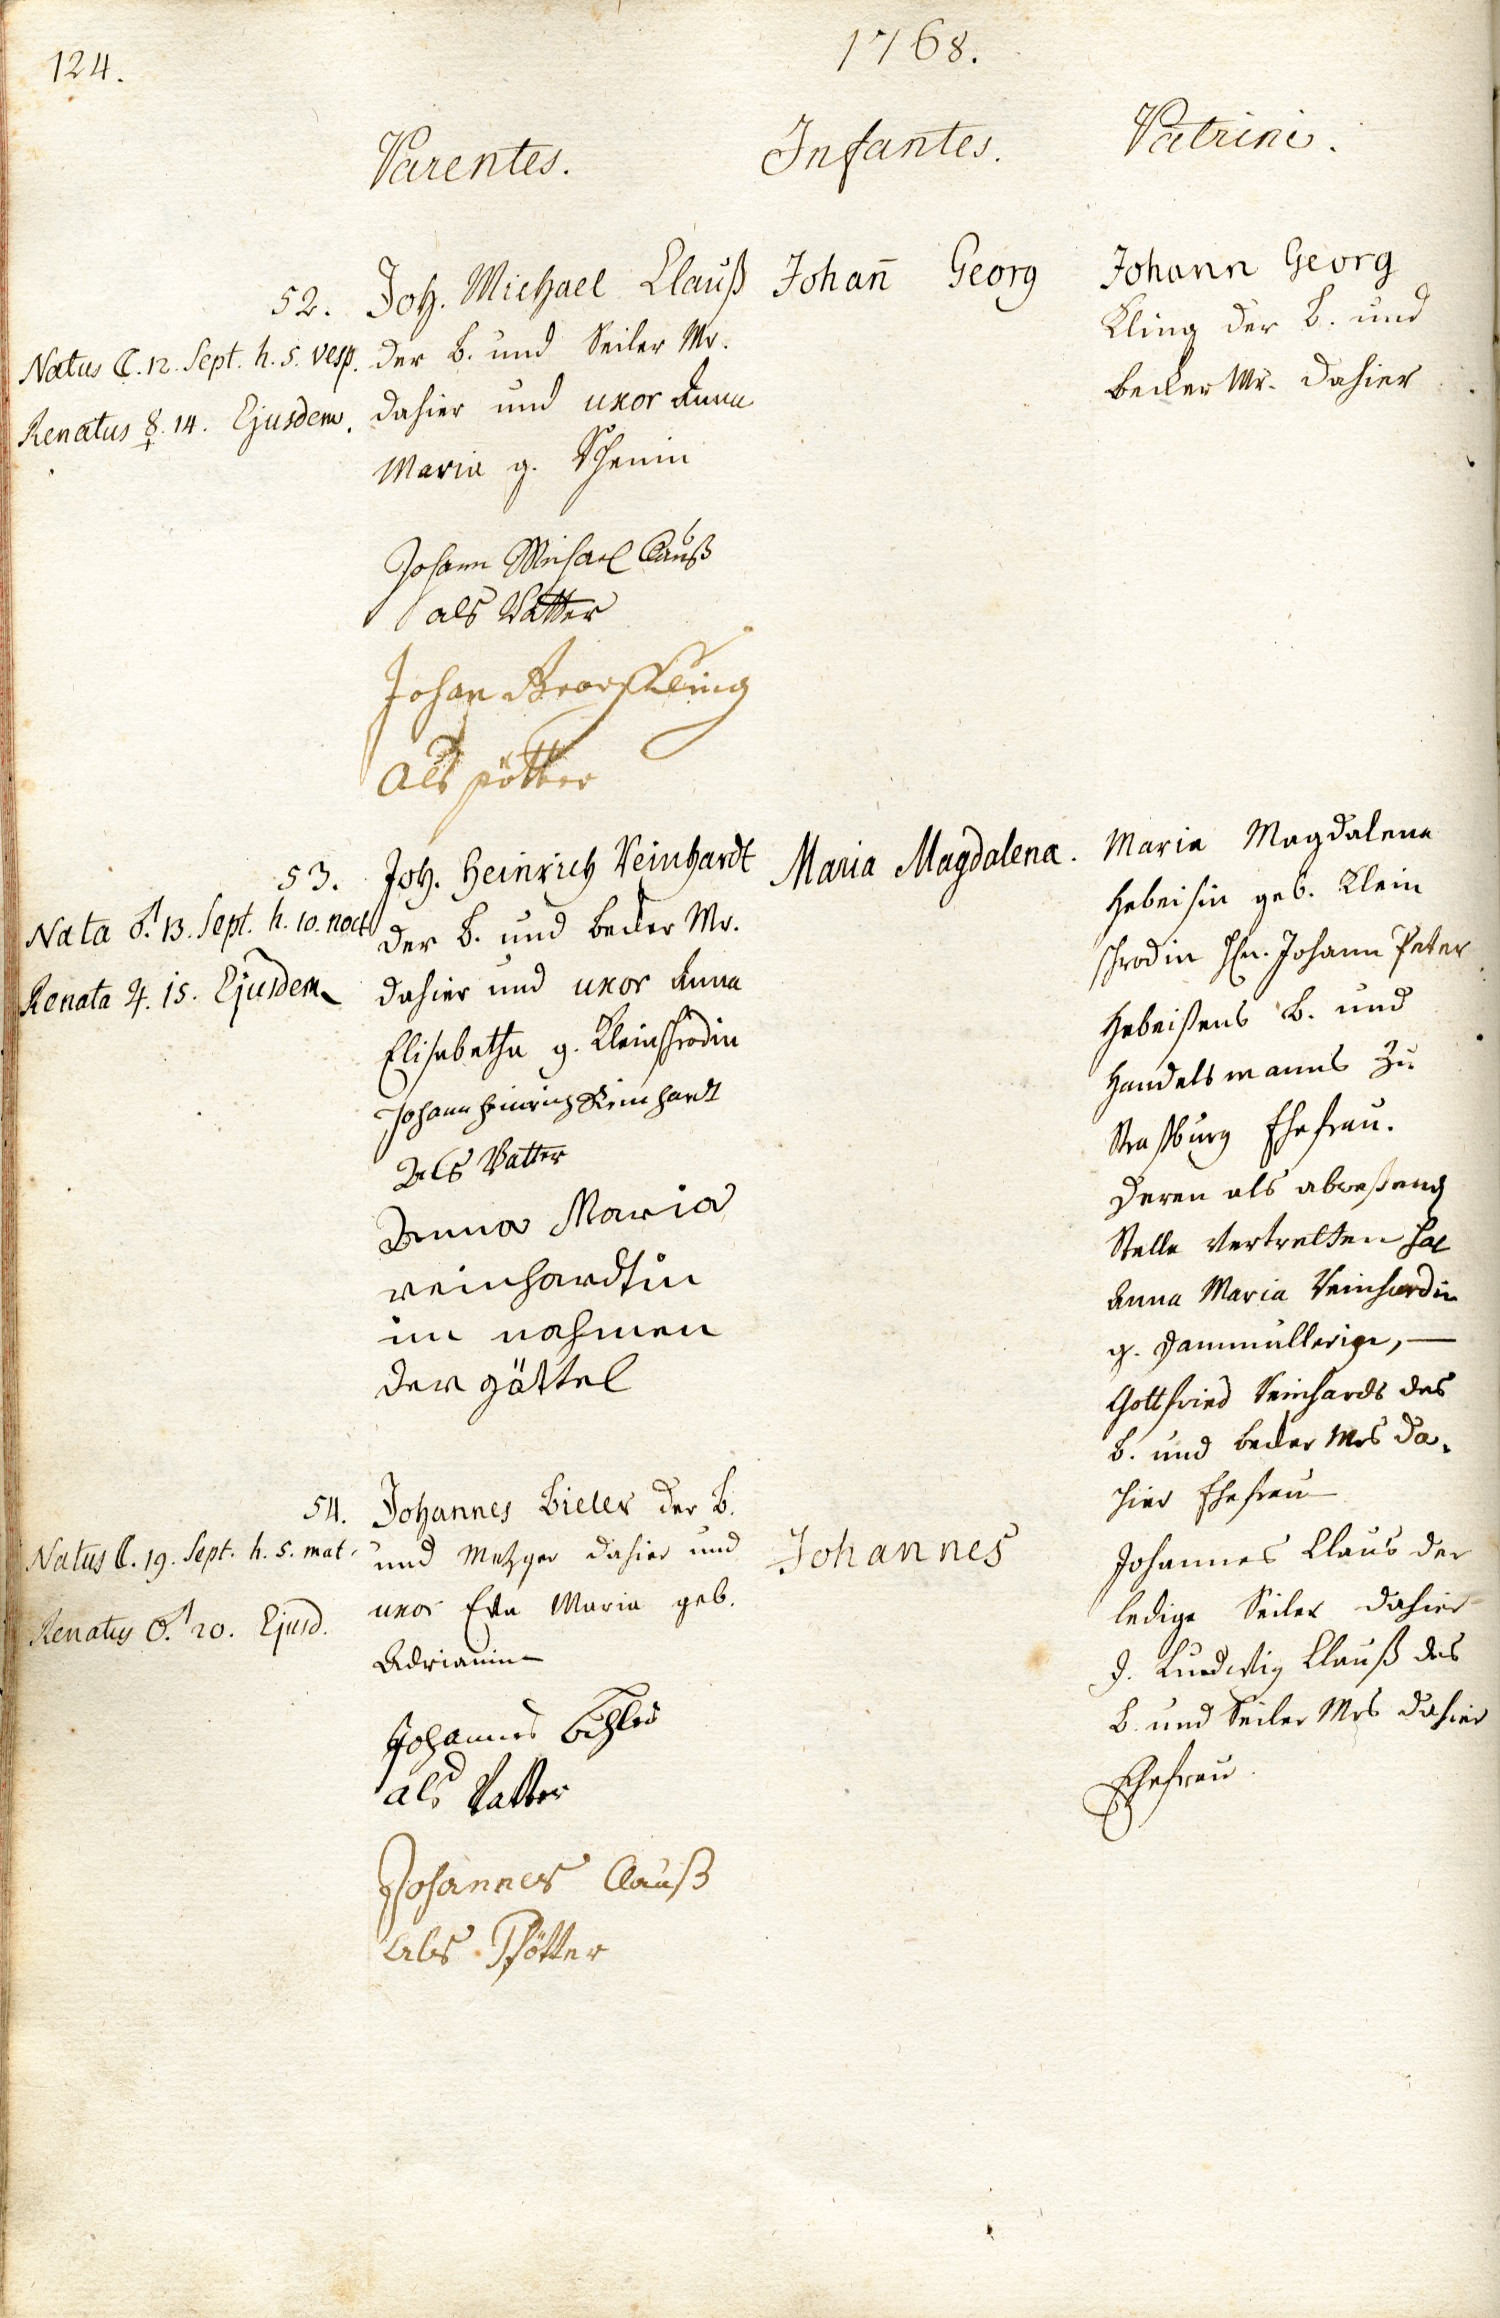 124.
1768.
Parentes.
Infantes.
Patrini.
52.
Natus ☾. 12. Sept. h. 5. vesp.
Renatus ☿. 14. Ejusdem.
Joh. Michael Clauß
der B. und Seiler Mr.
dahier und uxor Anna
Maria g.
Johann Michael Clauß
als Vatter
Johan Georg Kling
als pötter
Johan̅ Georg
Johann Georg
Kling der B. und
becker Mr. dahier
53.
Nata ♂. 13. Sept. h. 10. noct
Renata ♃. 15. Ejusdem
Joh. Heinrich Reinhardt
der B. und becker Mr.
dahier und uxor Anna
Elisabetha g. Kleinschrodin
Johann Heinrich Reinhardt
Als Vatter
Anna Maria
reinhardtin
im nahmen
der göttel
Maria Magdalena.
Maria Magdalena
Hebeisin geb. Klein
schrodin Hn. Johann Peter
Hebeisens B. und
Handelsmanns zu
Straßburg Ehefrau.
Deren als abweßend
Stelle vertretten hat
Anna Maria Reinhardin
g. Dammüllerin, —
Gottfried Reinhards des
B. und becker Mrs da-
hier Ehefrau
54.
Natus ☾. 19. Sept. h. 5. mat.
Renatus ♂. 20. Ejusd.
Johannes Bieler der B.
und Metzger dahier und
uxor Eva Maria geb.
Adrianin
Johannes Bihler
als Vatter
Johannes Clauß
Als Pfötter
Johannes
Johannes Claus der
ledige Seiler dahier
J. Ludwig Clauß des
B. und Seiler Mrs dahier
Ehefrau.